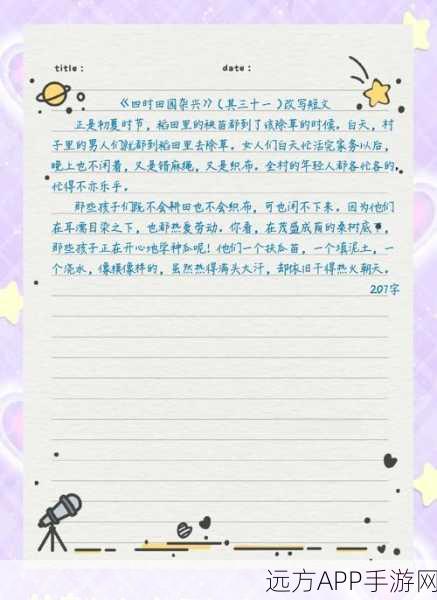 title：		date：
《四时田园杂兴》（其三十一）改写短文
正是初夏时节，稻田里的秧苗都到了该除草的时候。白天，村
子里的男人们就都到稻田里去除草。女人们白天忙活完家务以后，
晚上也不闲着，又是错麻绳，又是织布。全村的年轻人都各忙各的，
忙得不亦乐乎。
那些孩子们既不会耕田也不会织布，可也闲不下来。因为他们
在耳濡目染之下，也都热爱劳动。你看，在茂盛成荫的桑树底下，
那些孩子正在开心地学种瓜呢！他们一个扶瓜苗，一个填泥土，一
个浇水，像模像样的，虽然热得满头大汗，却依旧干得热火朝天。
207字
远方APP手游网